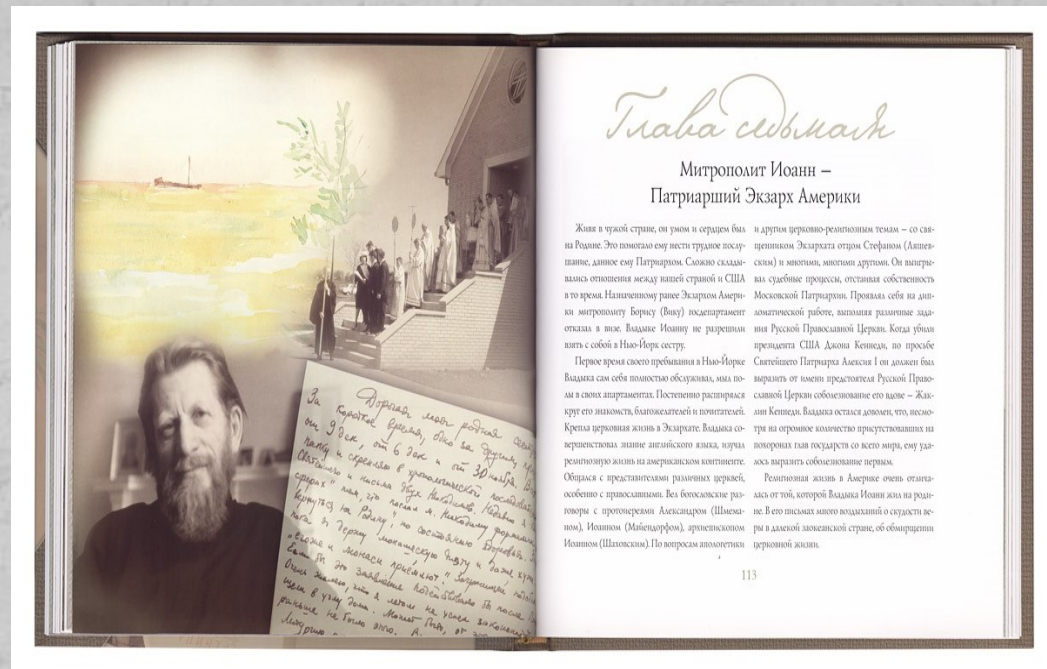 Дорогая моя родная
За короткое время, одно за другим
от 9 дек, от 6 дек и от 30 ноября.
папку и скрепляю в хронологической
Святейшего и письма Недавно я
вернуться на Родину" по состоянию здоровья.
Если бы это заявление подействовало бы после
Очень жалею, что я летом не успел
щели в углу дома. Может быть, от
раньше не было этого.
Глава седьмая
Митрополит Иоанн –
Патриарший Экзарх Америки
Живя в чужой стране, он умом и сердцем был
на Родине. Это помогало ему нести трудное послу-
шание, данное ему Патриархом. Сложно склады-
вались отношения между нашей страной и США
в то время. Назначенному ранее Экзархом Амери-
ки митрополиту Борису (Вику) госдепартамент
отказал в визе. Владыке Иоанну не разрешили
взять с собой в Нью-Йорк сестру.
Первое время своего пребывания в Нью-Йорке
Владыка сам себя полностью обслуживал, мыл по-
лы в своих апартаментах. Постепенно расширялся
круг его знакомств, благожелателей и почитателей.
Крепла церковная жизнь в Экзархате. Владыка со-
вершенствовал знание английского языка, изучал
религиозную жизнь на американском континенте.
Общался с представителями различных церквей,
особенно с православными. Вел богословские раз-
говоры с протоиереями Александром (Шмема-
ном), Иоанном (Майендорфом), архиепископом
Иоанном (Шаховским). По вопросам апологетики
и другим церковно-религиозным темам – со свя-
щенником Экзархата отцом Стефаном (Ляшев-
ским) и многими, многими другими. Он выигры-
вал судебные процессы, отстаивая собственность
Московской Патриархии. Проявлял себя на дип-
ломатической работе, выполняя различные зада-
ния Русской Православной Церкви. Когда убили
президента США Джона Кеннеди, по просьбе
Святейшего Патриарха Алексия I он должен был
выразить от имени предстоятеля Русской Право-
славной Церкви соболезнование его вдове – Жак-
лин Кеннеди. Владыка остался доволен, что, несмо-
тря на огромное количество присутствовавших на
похоронах глав государств со всего мира, ему уда-
лось выразить соболезнование первым.
Религиозная жизнь в Америке очень отлича-
лась от той, которой Владыка Иоанн жил на роди-
не. В его письмах много воздыханий о скудости ве-
ры в далекой заокеанской стране, об обмирщении
церковной жизни.
113